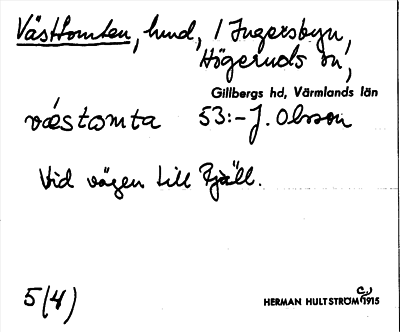 Västtomten, hmd, / Ingersbyn,
Högeruds sn,
Gillbergs hd, Värmlands län
västomta 53:- J. Olsson
Vid vägen till Fjäll.
5(4)
HERMAN HULTSTRÖM 1915